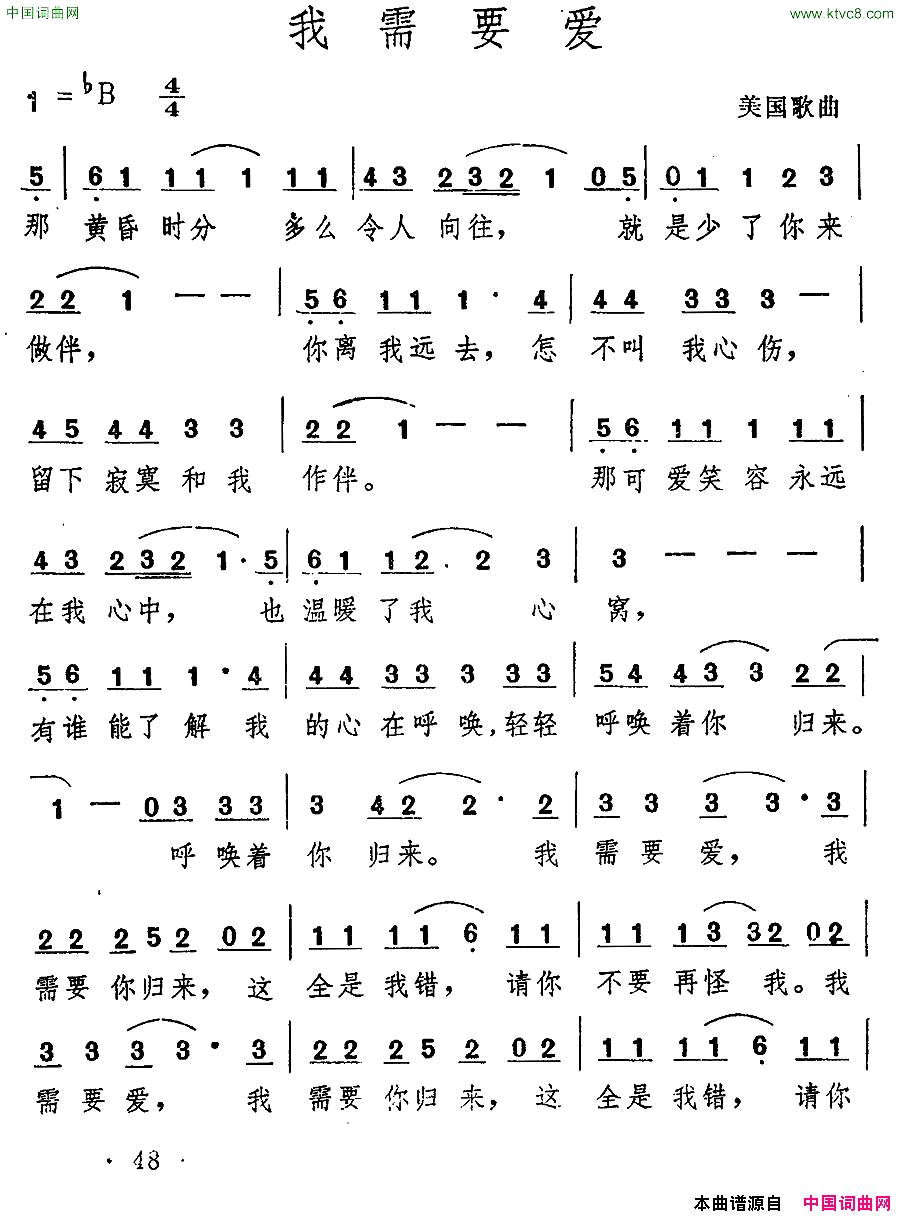 中国词曲网
www.ktvc8.com
我需要爱
1 = ♭B 4/4
美国歌曲
5 | 6 1 1 1 1 1 1 | 4 3 2 3 2 1 0 5 | 0 1 1 2 3 |
那 黄昏 时分 多么 令人 向往， 就 是少 了你来
2 2 1 — — | 5 6 1 1 1 · 4 | 4 4 3 3 3 — |
做伴， 你离 我远去，怎 不叫 我心伤，
4 5 4 4 3 3 | 2 2 1 — — | 5 6 1 1 1 1 1 |
留下 寂寞 和 我 作伴。 那可 爱笑 容 永远
4 3 2 3 2 1 · 5 | 6 1 1 2 . 2 3 | 3 — — — |
在我 心中， 也 温暖 了我 心 窝，
5 6 1 1 1 · 4 | 4 4 3 3 3 3 3 | 5 4 4 3 3 2 2 |
有谁 能了 解 我 的心 在呼 唤，轻轻 呼唤 着你 归来。
1 — 0 3 3 3 | 3 4 2 2 · 2 | 3 3 3 3 · 3 |
呼 唤着 你 归来。 我 需要 爱， 我
2 2 2 5 2 0 2 | 1 1 1 1 6 1 1 | 1 1 1 3 3 2 0 2 |
需要 你归来， 这 全是 我错， 请你 不要 再怪 我。我
3 3 3 3 · 3 | 2 2 2 5 2 0 2 | 1 1 1 1 6 1 1 |
需要 爱， 我 需要 你归 来，这 全是 我错， 请你
· 48 ·
本曲谱源自 中国词曲网